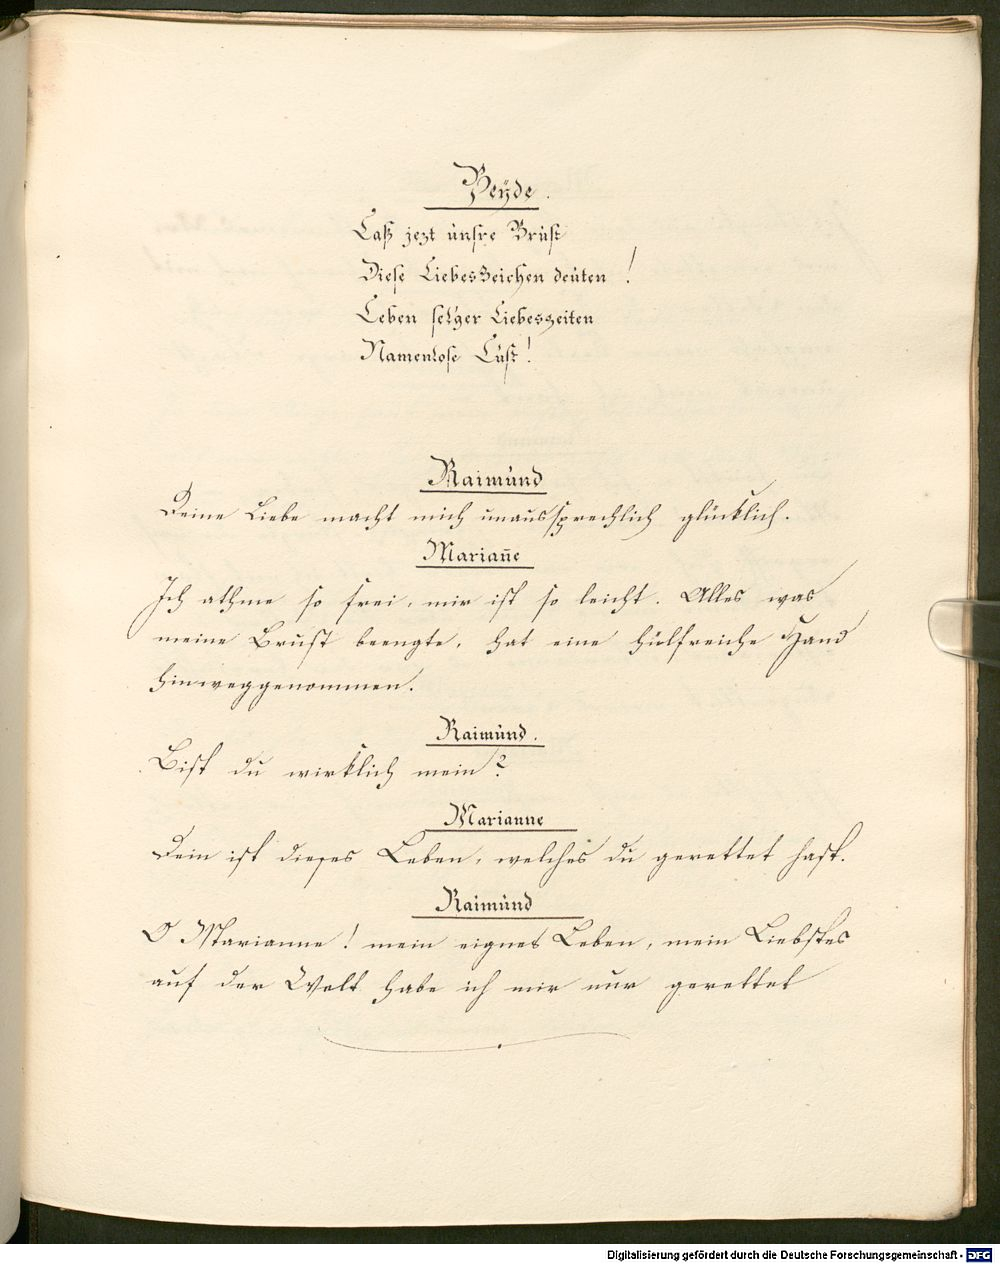 Beÿde.
Laß jezt unsre Brust
Diese Liebeszeichen deuten!
Leben sel'ger Liebeszeiten
Namenlose Lust!
Raimund
Deine Liebe macht mich unaussprechlich glücklich.
Mariañe
Ich athme so frei, mir ist so leicht. Alles was
meine Brust beengte, hat eine hülfreiche Hand
hinweggenommen.
Raimund.
Bist du wirklich mein?
Marianne
Dein ist dieses Leben, welches du gerettet hast.
Raimund
O Marianne! mein eignes Leben, mein Liebstes
auf der Welt habe ich mir nur gerettet
Digitalisierung gefördert durch die Deutsche Forschungsgemeinschaft - DFG